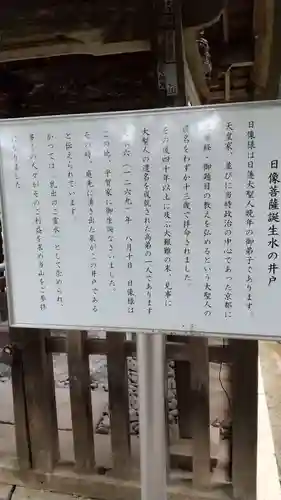 日像菩薩誕生水の井戸
日像様は日蓮大聖人晩年の御弟子であります。
天皇家、並びに当時政治の中心であった京都に
法華経・御題目の教えを弘めるという大聖人の
遺名をわずか十三歳で拝命されました。
その後四十年以上に及ぶ大難難の末、見事に
大聖人の遺名を成就された高弟の一人であります
文永六(一二六九)年 八月十日 日像様は
この地、平賀家に御生誕なさいました。
その時、庭先に湧き出た泉がこの井戸である
と伝えられています。
かつては、乳出の「霊水」として崇められ、
多くの人々がそのご利益を求め当山をご参詣
になりました